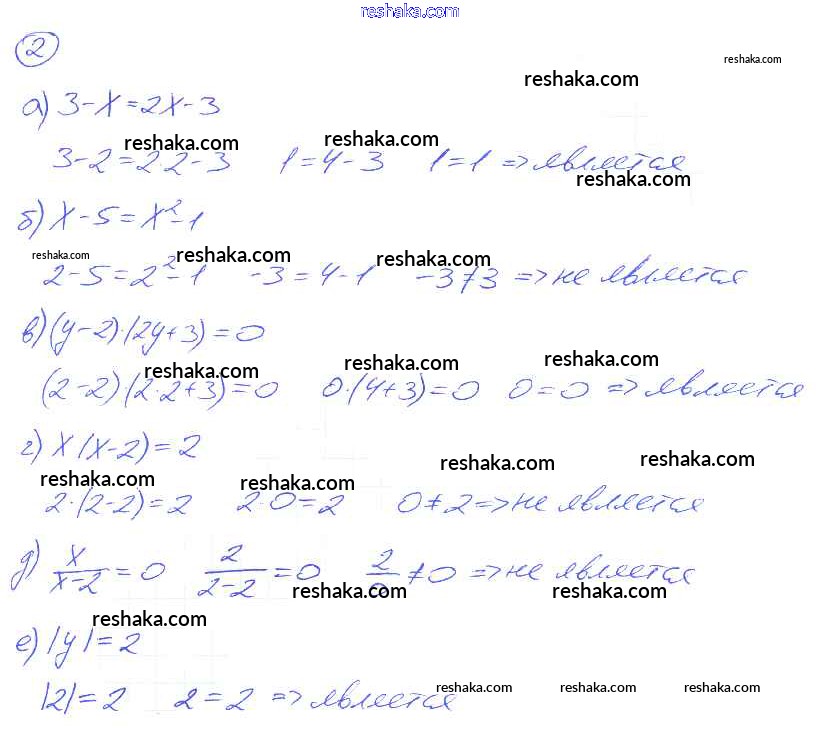 reshaka.com
2
reshaka.com
reshaka.com
а) 3-x=2x-3
reshaka.com reshaka.com
3-2=2·2-3 1=4-3 1=1 => является
reshaka.com
б) x-5=x²-1
reshaka.com reshaka.com reshaka.com
2-5=2²-1 -3=4-1 -3≠3 => не является
в) (y-2)·(2y+3)=0
reshaka.com reshaka.com reshaka.com
(2-2)·(2·2+3)=0 0·(4+3)=0 0=0 => является
г) x(x-2)=2
reshaka.com reshaka.com
reshaka.com reshaka.com
2·(2-2)=2 2·0=2 0≠2 => не является
д) x/(x-2)=0 2/(2-2)=0 2/0≠0 => не является
reshaka.com reshaka.com
reshaka.com
е) |y|=2
reshaka.com reshaka.com reshaka.com
|2|=2 2=2 => является